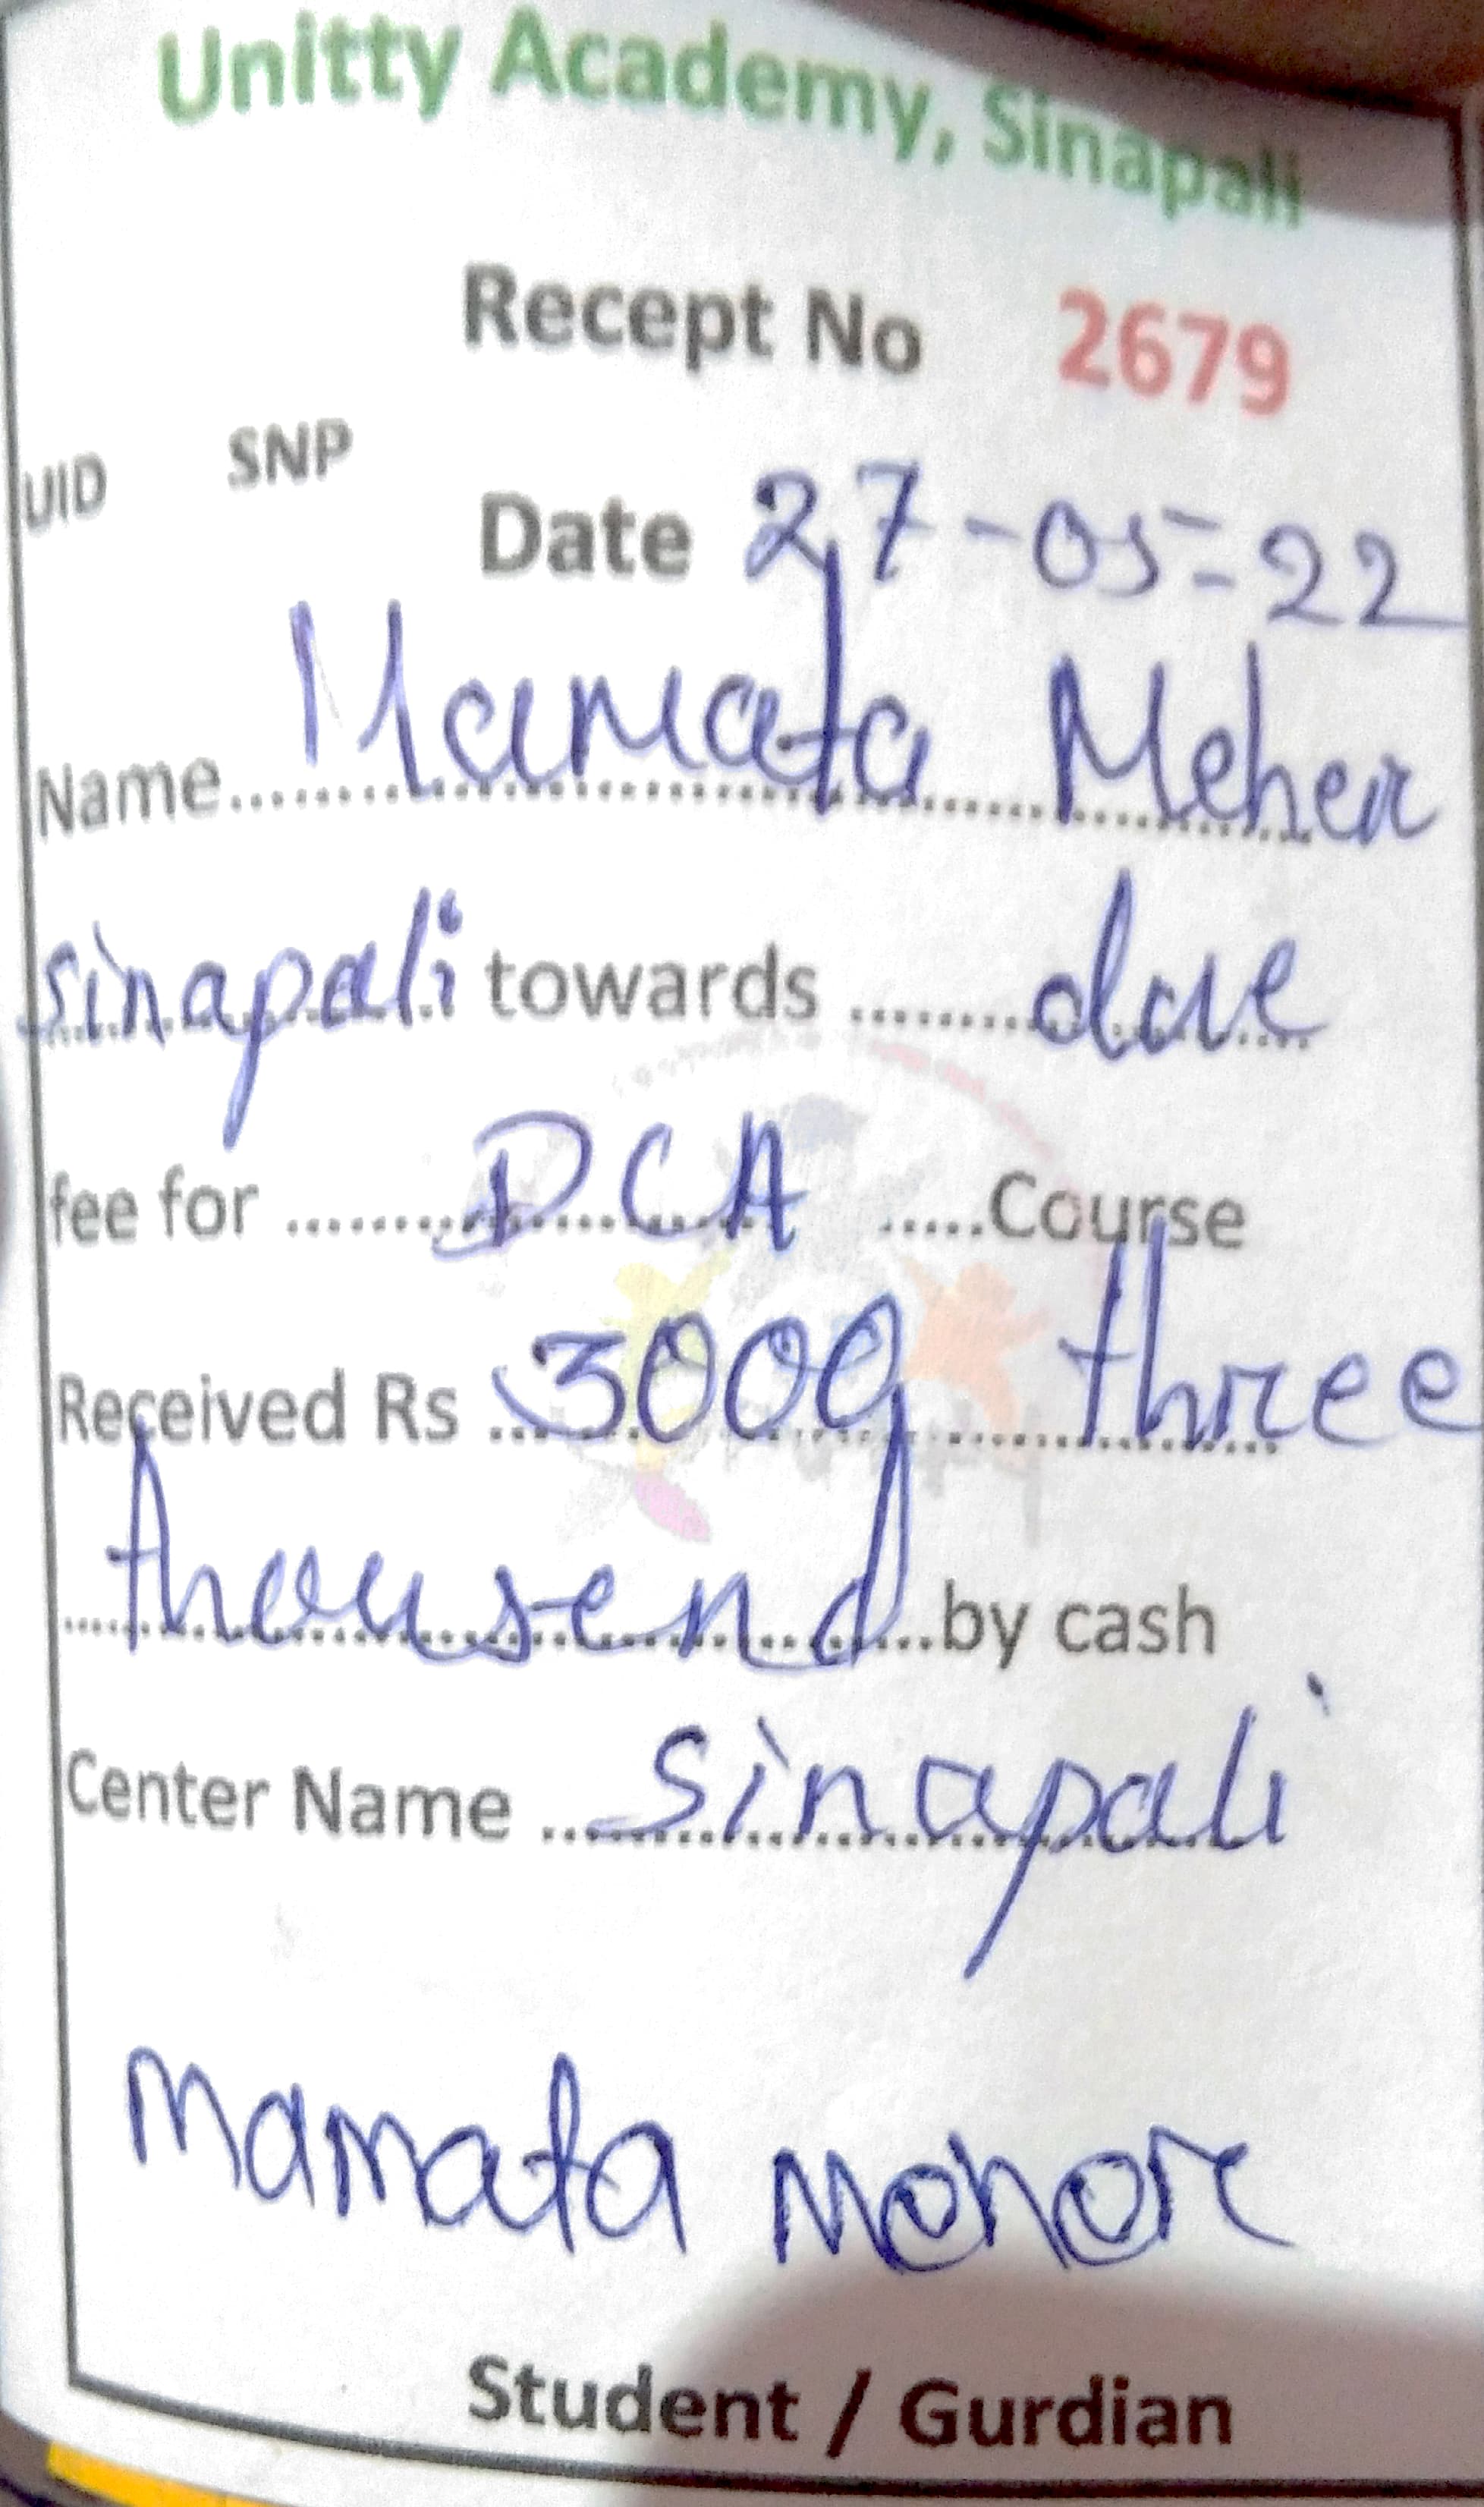 Unitty Academy, Sinapali
Recept No 2679
UID SNP
Date 27-05-22
Name.......... Mamata Meher
sinapali towards ......... due
fee for ......... DCA .....Course
Received Rs ... 3000 ...... three
thousend ..by cash
Center Name ... Sinapali
Mamata Meher
Student / Gurdian